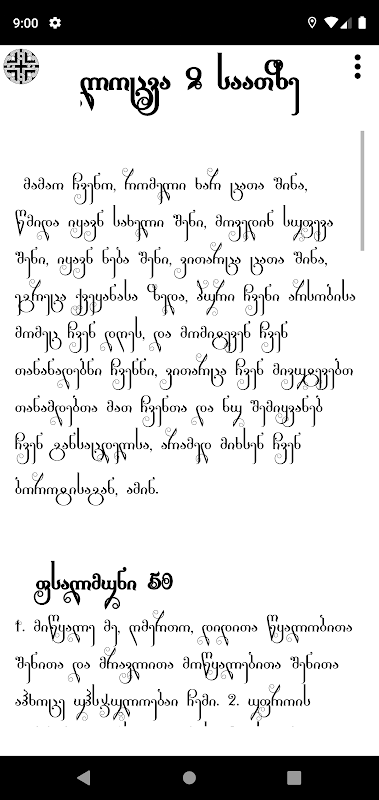 9:00
ლოცვა 9 საათზე
მამაო ჩვენო, რომელი ხარ ცათა შინა,
წმიდა იყავნ სახელი შენი, მოვედინ სუფევა
შენი, იყავნ ნება შენი, ვითარცა ცათა შინა,
ეგრეცა ქვეყანასა ზედა, პური ჩვენი არსობისა
მომეც ჩვენ დღეს, და მომიტევენ ჩვენ
თანანადებნი ჩვენნი, ვითარცა ჩვენ მივუტევებთ
თანამდებთა მათ ჩვენთა და ნუ შემიყვანებ
ჩვენ განსაცდელსა, არამედ მიხსენ ჩვენ
ბოროტისაგან, ამინ.
ფსალმუნი 50
1. მიწყალე მე, ღმერთო, დიდითა წყალობითა
შენითა და მრავლითა მოწყალებითა შენითა
აჰხოცე უჰსჯულოებაი ჩემი. 2. უფროის